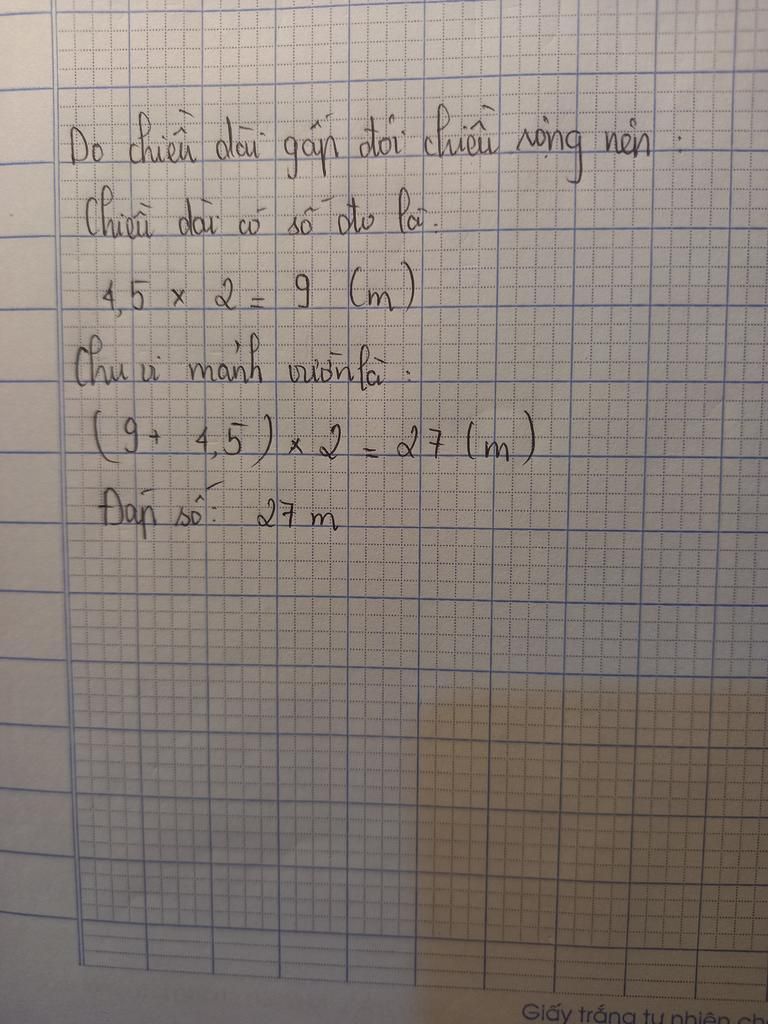 Do chiều dài gấp đôi chiều rộng nên :
Chiều dài có số đo là:
4,5 × 2 = 9 (m)
Chu vi mảnh vườn là :
(9 + 4,5) × 2 = 27 (m)
Đáp số: 27 m
Giấy trắng tự nhiên